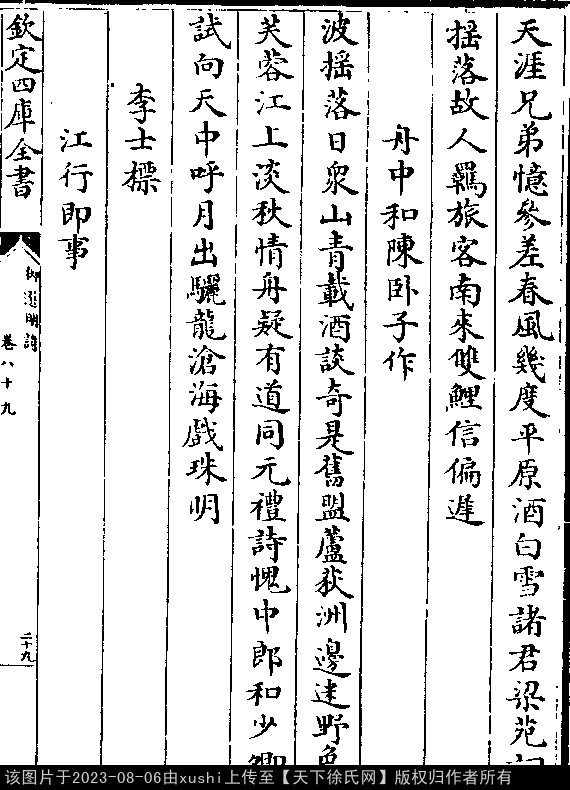 天涯兄弟憶參差春風幾度平原酒白雪諸君梁苑
搖落故人羈旅客南來雙鯉信偏遲
舟中和陳卧子作
波摇落日衆山青載酒談奇是舊盟蘆荻洲邊迷野色
芙蓉江上淡秋情舟疑有道同元禮詩愧中郎和少卿
試向天中呼月出驪龍滄海戲珠明
李士標
江行即事
欽定四庫全書
御選明詩
卷八十九
二十九
该图片于2023-08-06由xushi上传至【天下徐氏网】版权归作者所有